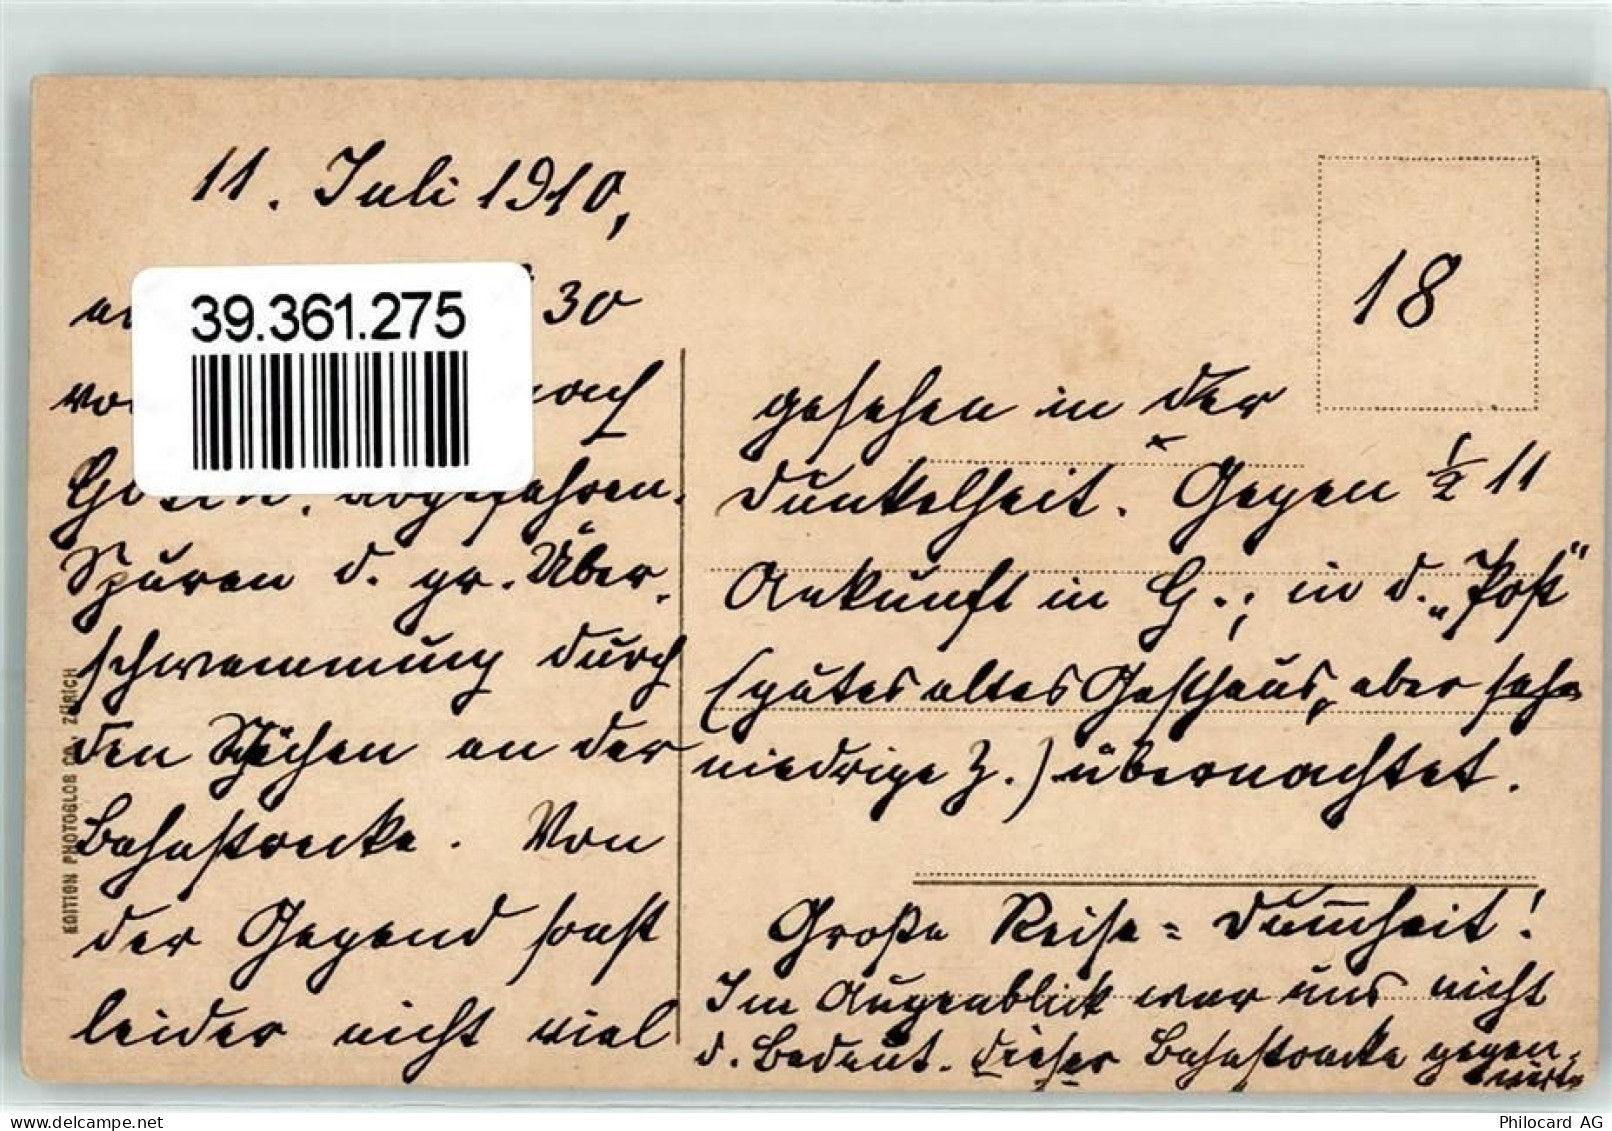 11. Juli 1910,
30
39.361.275
nach
abgefahren.
Spuren d. gr. Über-
schwemmung durch
den an der
Bahnstrecke. Von
der Gegend sonst
leider nicht viel
EDITION PHOTOGLOB CO. ZÜRICH
18
gesehen in der
Dunkelheit. Gegen ½ 11
Ankunft in G.; in d. „Post"
(gutes altes Gasthaus, aber sehr
niedrige Z.) übernachtet.
Große Reise = Dummheit!
Im Augenblick war uns nicht
d. Bedeut. dieser Bahnstrecke gegen-
wärtig
Philocard AG